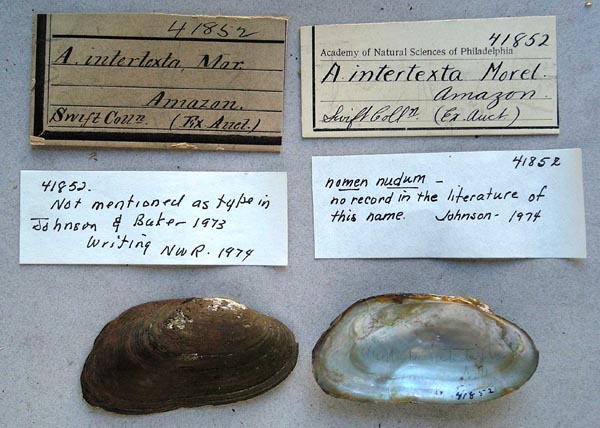 41852
A. intertexta Mor.
Amazon.
Swift Colln (Ex Auct.)
41852
Academy of Natural Sciences of Philadelphia
A. intertexta Morel.
Amazon.
Swift Colln. (Ex Auct)
41852.
Not mentioned as type in
Johnson & Baker 1973
Writing NWR. 1974
41852
nomen nudum –
no record in the literature of
this name. Johnson - 1974
41852